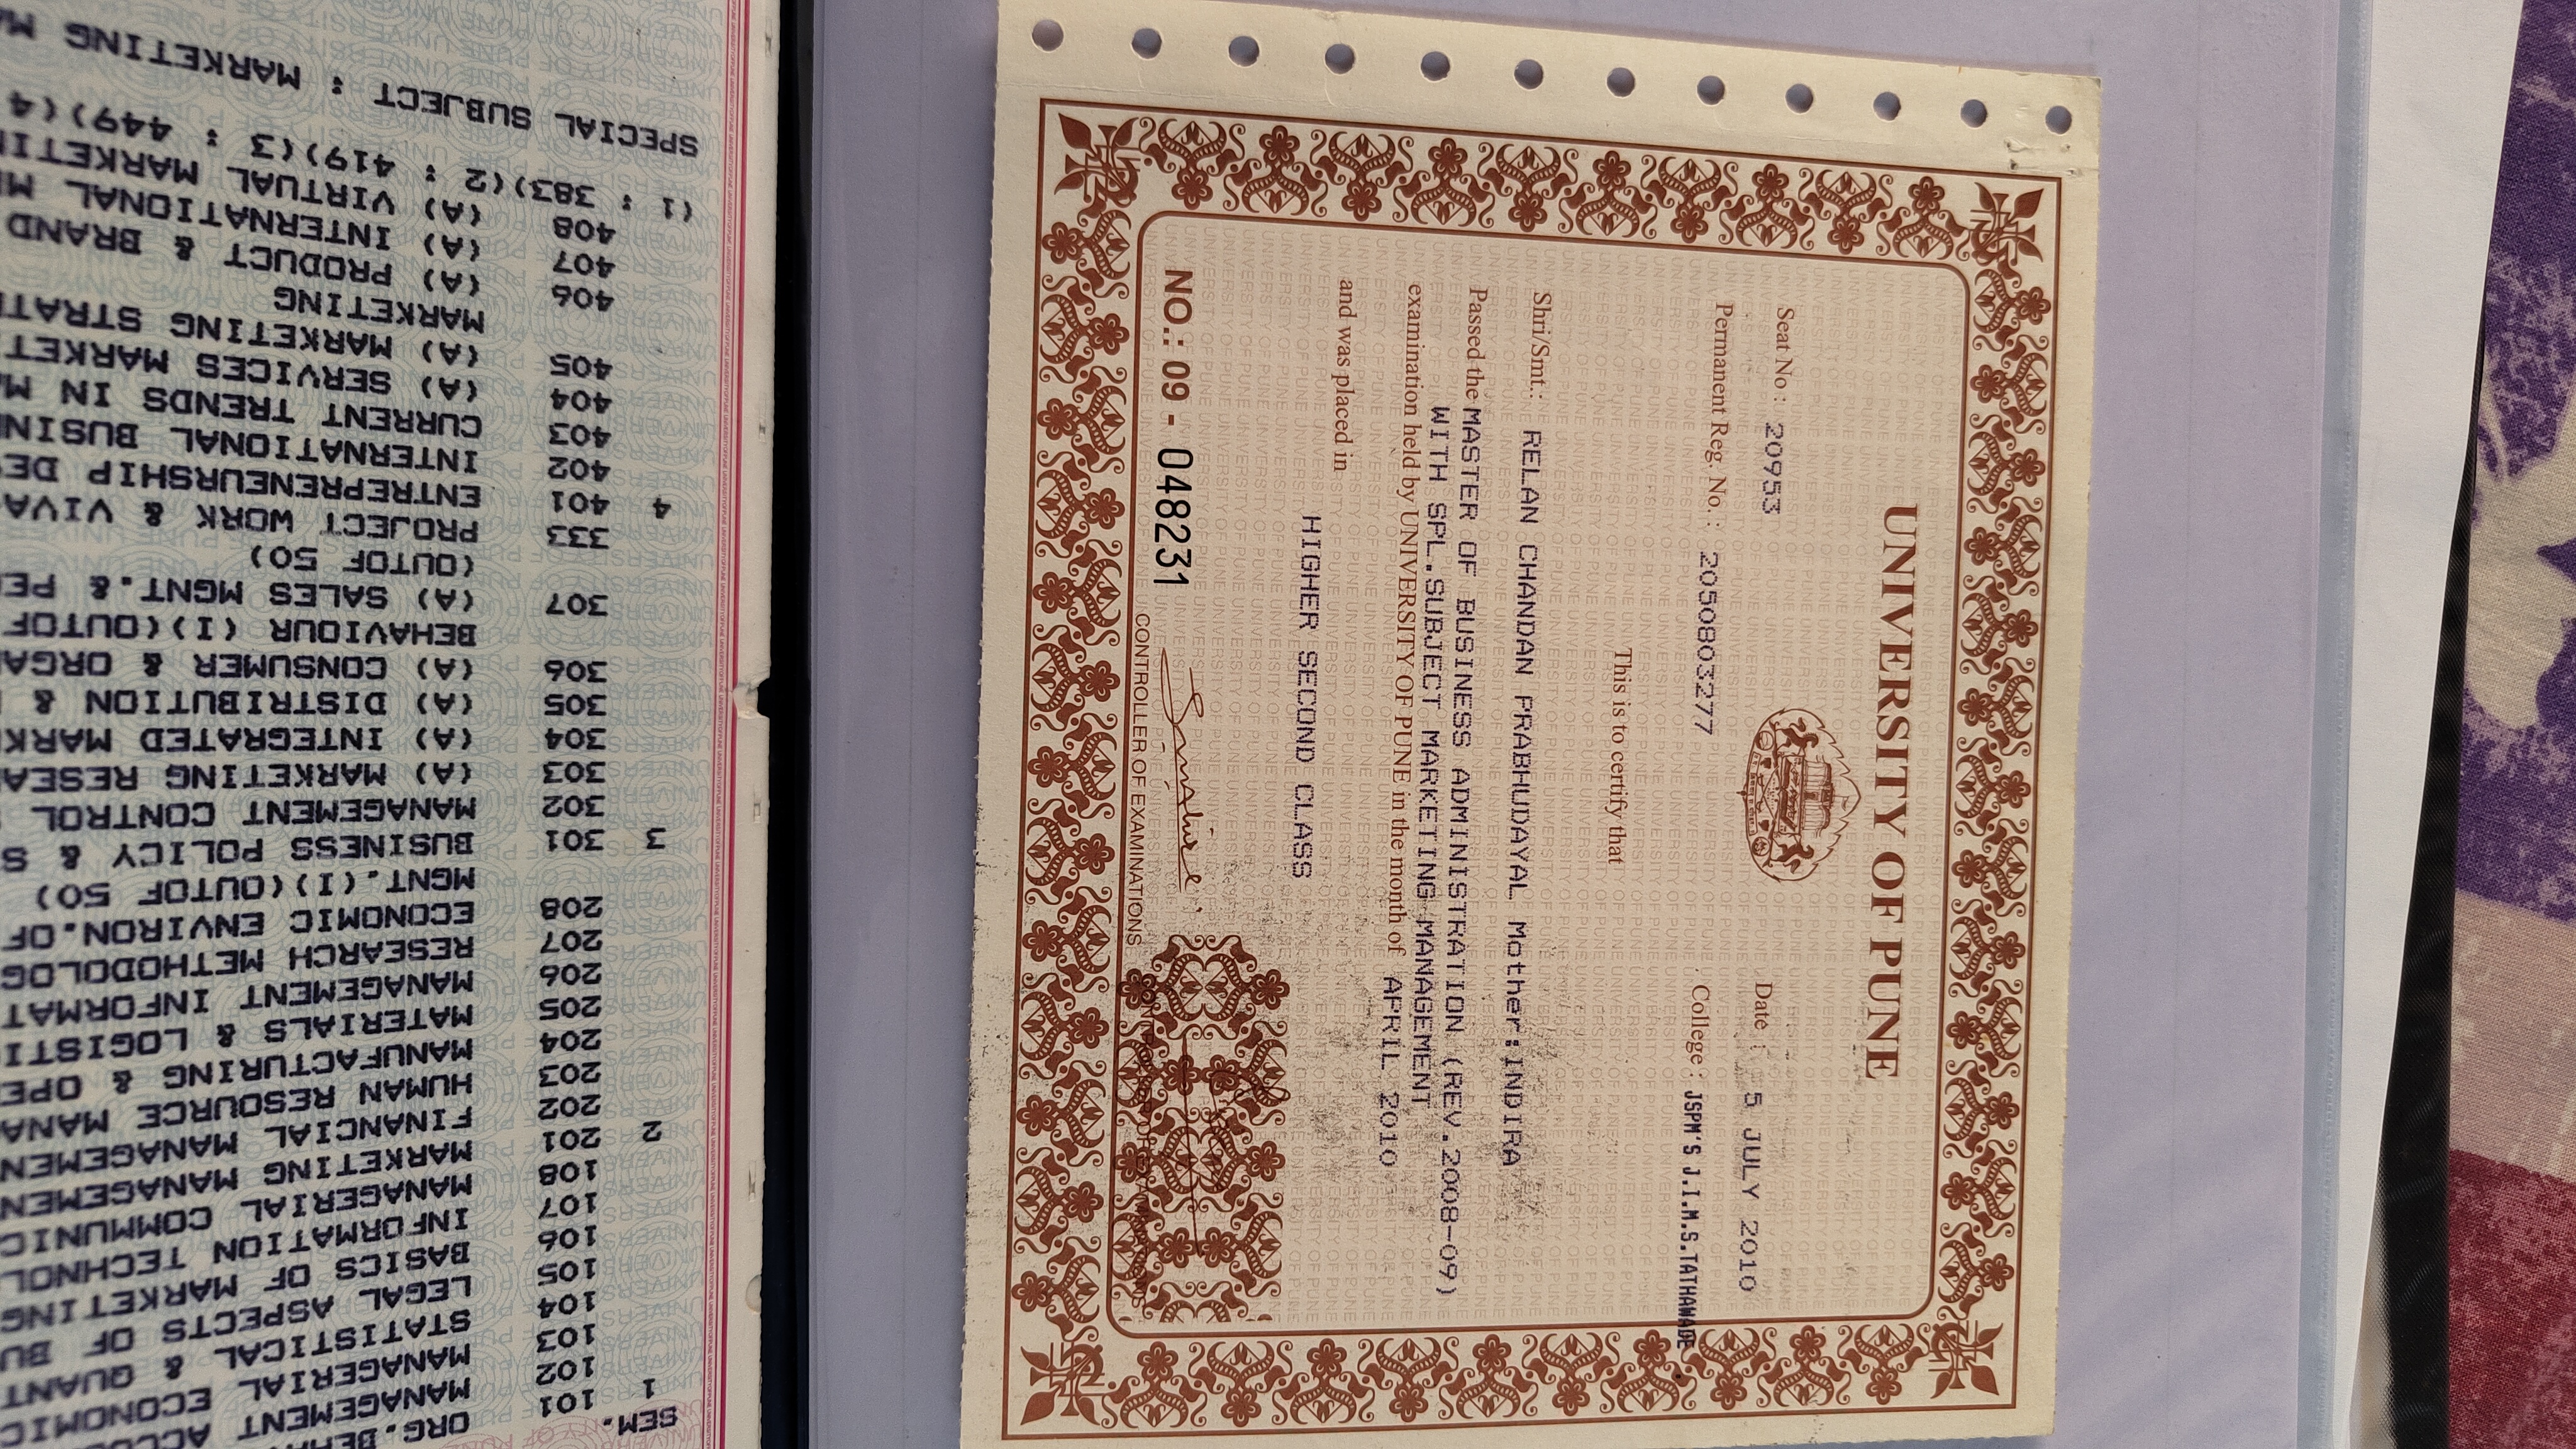 UNIVERSITY OF PUNE
Seat No : 20953
Date : 5 JULY 2010
Permanent Reg. No. : 2050803277
College : JSPM'S J.I.M.S.TATHAWADE
This is to certify that
Shri/Smt.: RELAN CHANDAN PRABHUDAYAL Mother:INDIRA
Passed the MASTER OF BUSINESS ADMINISTRATION (REV.2008-09)
WITH SPL.SUBJECT MARKETING MANAGEMENT
examination held by UNIVERSITY OF PUNE in the month of APRIL 2010
and was placed in
HIGHER SECOND CLASS
NO.: 09 - 048231
CONTROLLER OF EXAMINATIONS
SEM.
1 101 ORG.
102 MANAGEMENT
103 MANAGERIAL ECONOMIC
104 STATISTICAL & QUANT
105 LEGAL ASPECTS OF BU
106 BASICS OF MARKETING
107 INFORMATION TECHNOL
108 MANAGERIAL COMMUNIC
2 201 MARKETING MANAGEMEN
202 FINANCIAL MANAGEMEN
203 HUMAN RESOURCE MANA
204 MANUFACTURING & OPE
205 MATERIALS & LOGISTI
206 MANAGEMENT INFORMAT
207 RESEARCH METHODOLOG
208 ECONOMIC ENVIRON.OF
MGNT.(I)(OUTOF 50)
3 301 BUSINESS POLICY & S
302 MANAGEMENT CONTROL
303 (A) MARKETING RESEA
304 (A) INTEGRATED MARK
305 (A) DISTRIBUTION &
306 (A) CONSUMER & ORGA
BEHAVIOUR (I)(OUTOF
307 (A) SALES MGNT.& PE
(OUTOF 50)
333 PROJECT WORK & VIVA
4 401 ENTREPRENEURSHIP DE
402 INTERNATIONAL BUSIN
403 CURRENT TRENDS IN M
404 (A) SERVICES MARKET
405 (A) MARKETING STRAT
MARKETING
406 (A) PRODUCT & BRAND
407 (A) INTERNATIONAL M
408 (A) VIRTUAL MARKETI
(1 : 383)(2 : 419)(3 : 449)(4
SPECIAL SUBJECT : MARKETING M